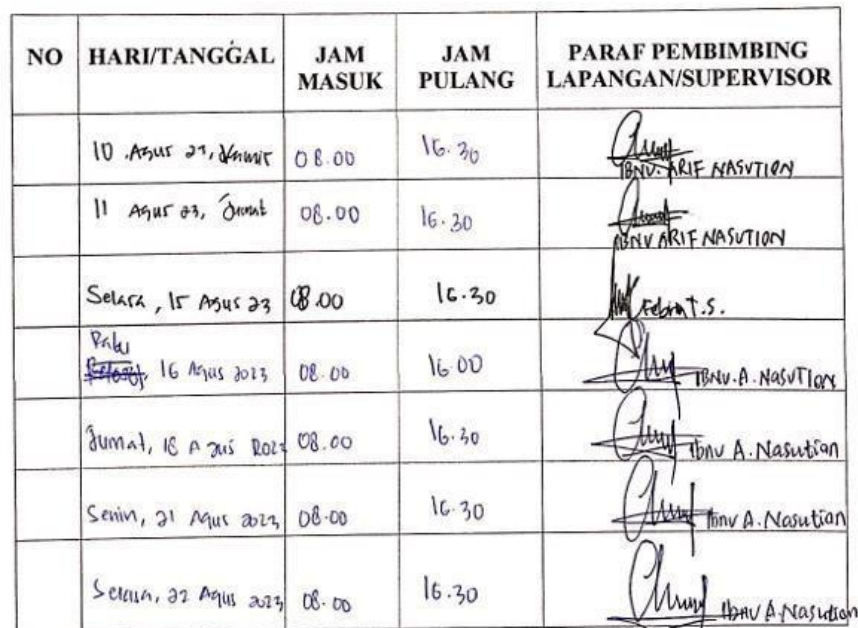 NO HARI/TANGGAL JAM MASUK JAM PULANG PARAF PEMBIMBING LAPANGAN/SUPERVISOR
10 Agus 23, Kamis 08.00 16.30 IBNU. ARIF NASUTION
11 Agus 23, Jumat 08.00 16.30 IBNU ARIF NASUTION
Selasa, 15 Agus 23 08.00 16.30 Febrin T.S.
Rabu
16 Agus 2023 08.00 16.00 IBNU.A.NASUTION
Jumat, 18 Agus 2023 08.00 16.30 Ibnu A. Nasution
Senin, 21 Agus 2023 08.00 16.30 Ibnu A. Nasution
Selasa, 22 Agus 2023 08.00 16.30 Ibnu A. Nasution